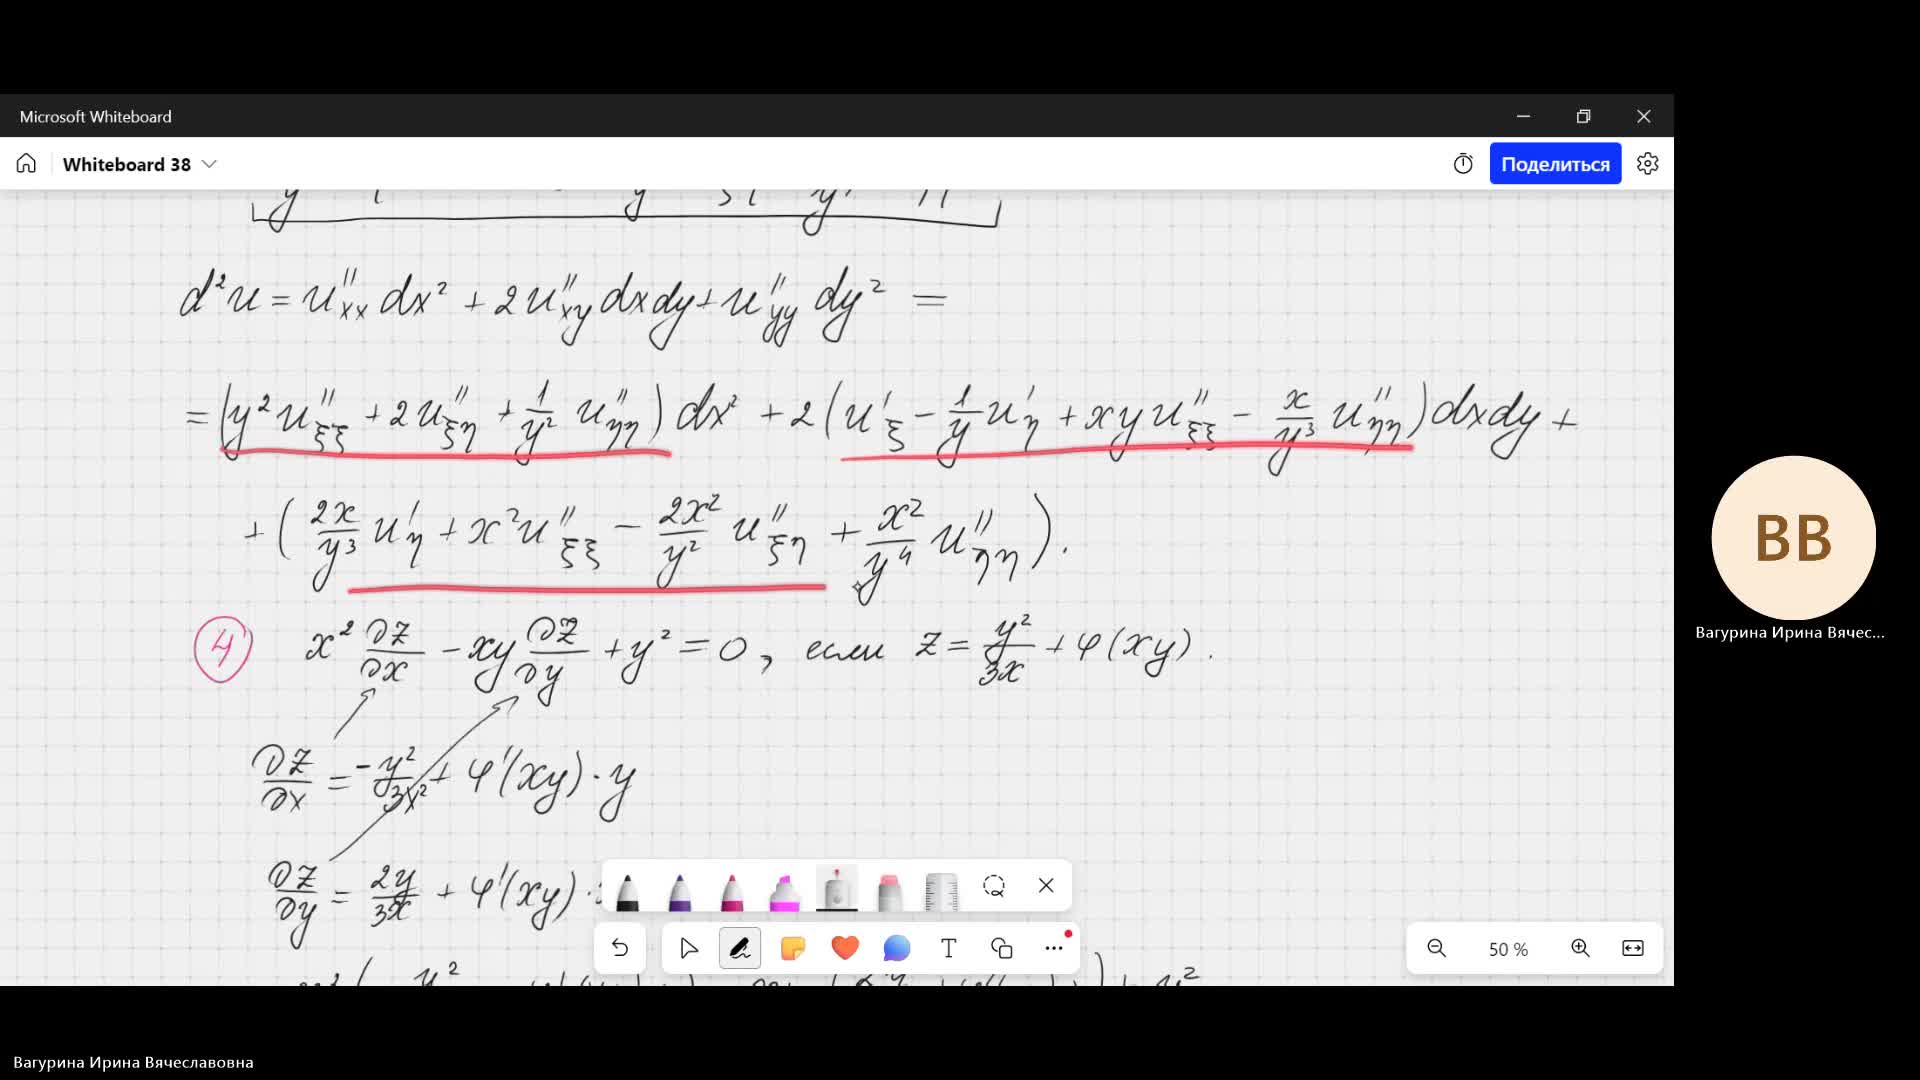 Microsoft Whiteboard
Whiteboard 38
Поделиться
d²u = u''xx dx² + 2u''xy dxdy + u''yy dy² =
= (y² u''ξξ + 2u''ξη + 1/y² u''ηη) dx² + 2(u'ξ - 1/y u'η + xy u''ξξ - x/y³ u''ηη) dxdy +
+ (2x/y³ u'η + x² u''ξξ - 2x²/y² u''ξη + x²/y⁴ u''ηη).
4 x² ∂z/∂x - xy ∂z/∂y + y² = 0, если z = y²/3x + φ(xy).
∂z/∂x = -y²/3x² + φ'(xy)·y
∂z/∂y = 2y/3x + φ'(xy)·
50 %
BB
Вагурина Ирина Вячес...
Вагурина Ирина Вячеславовна